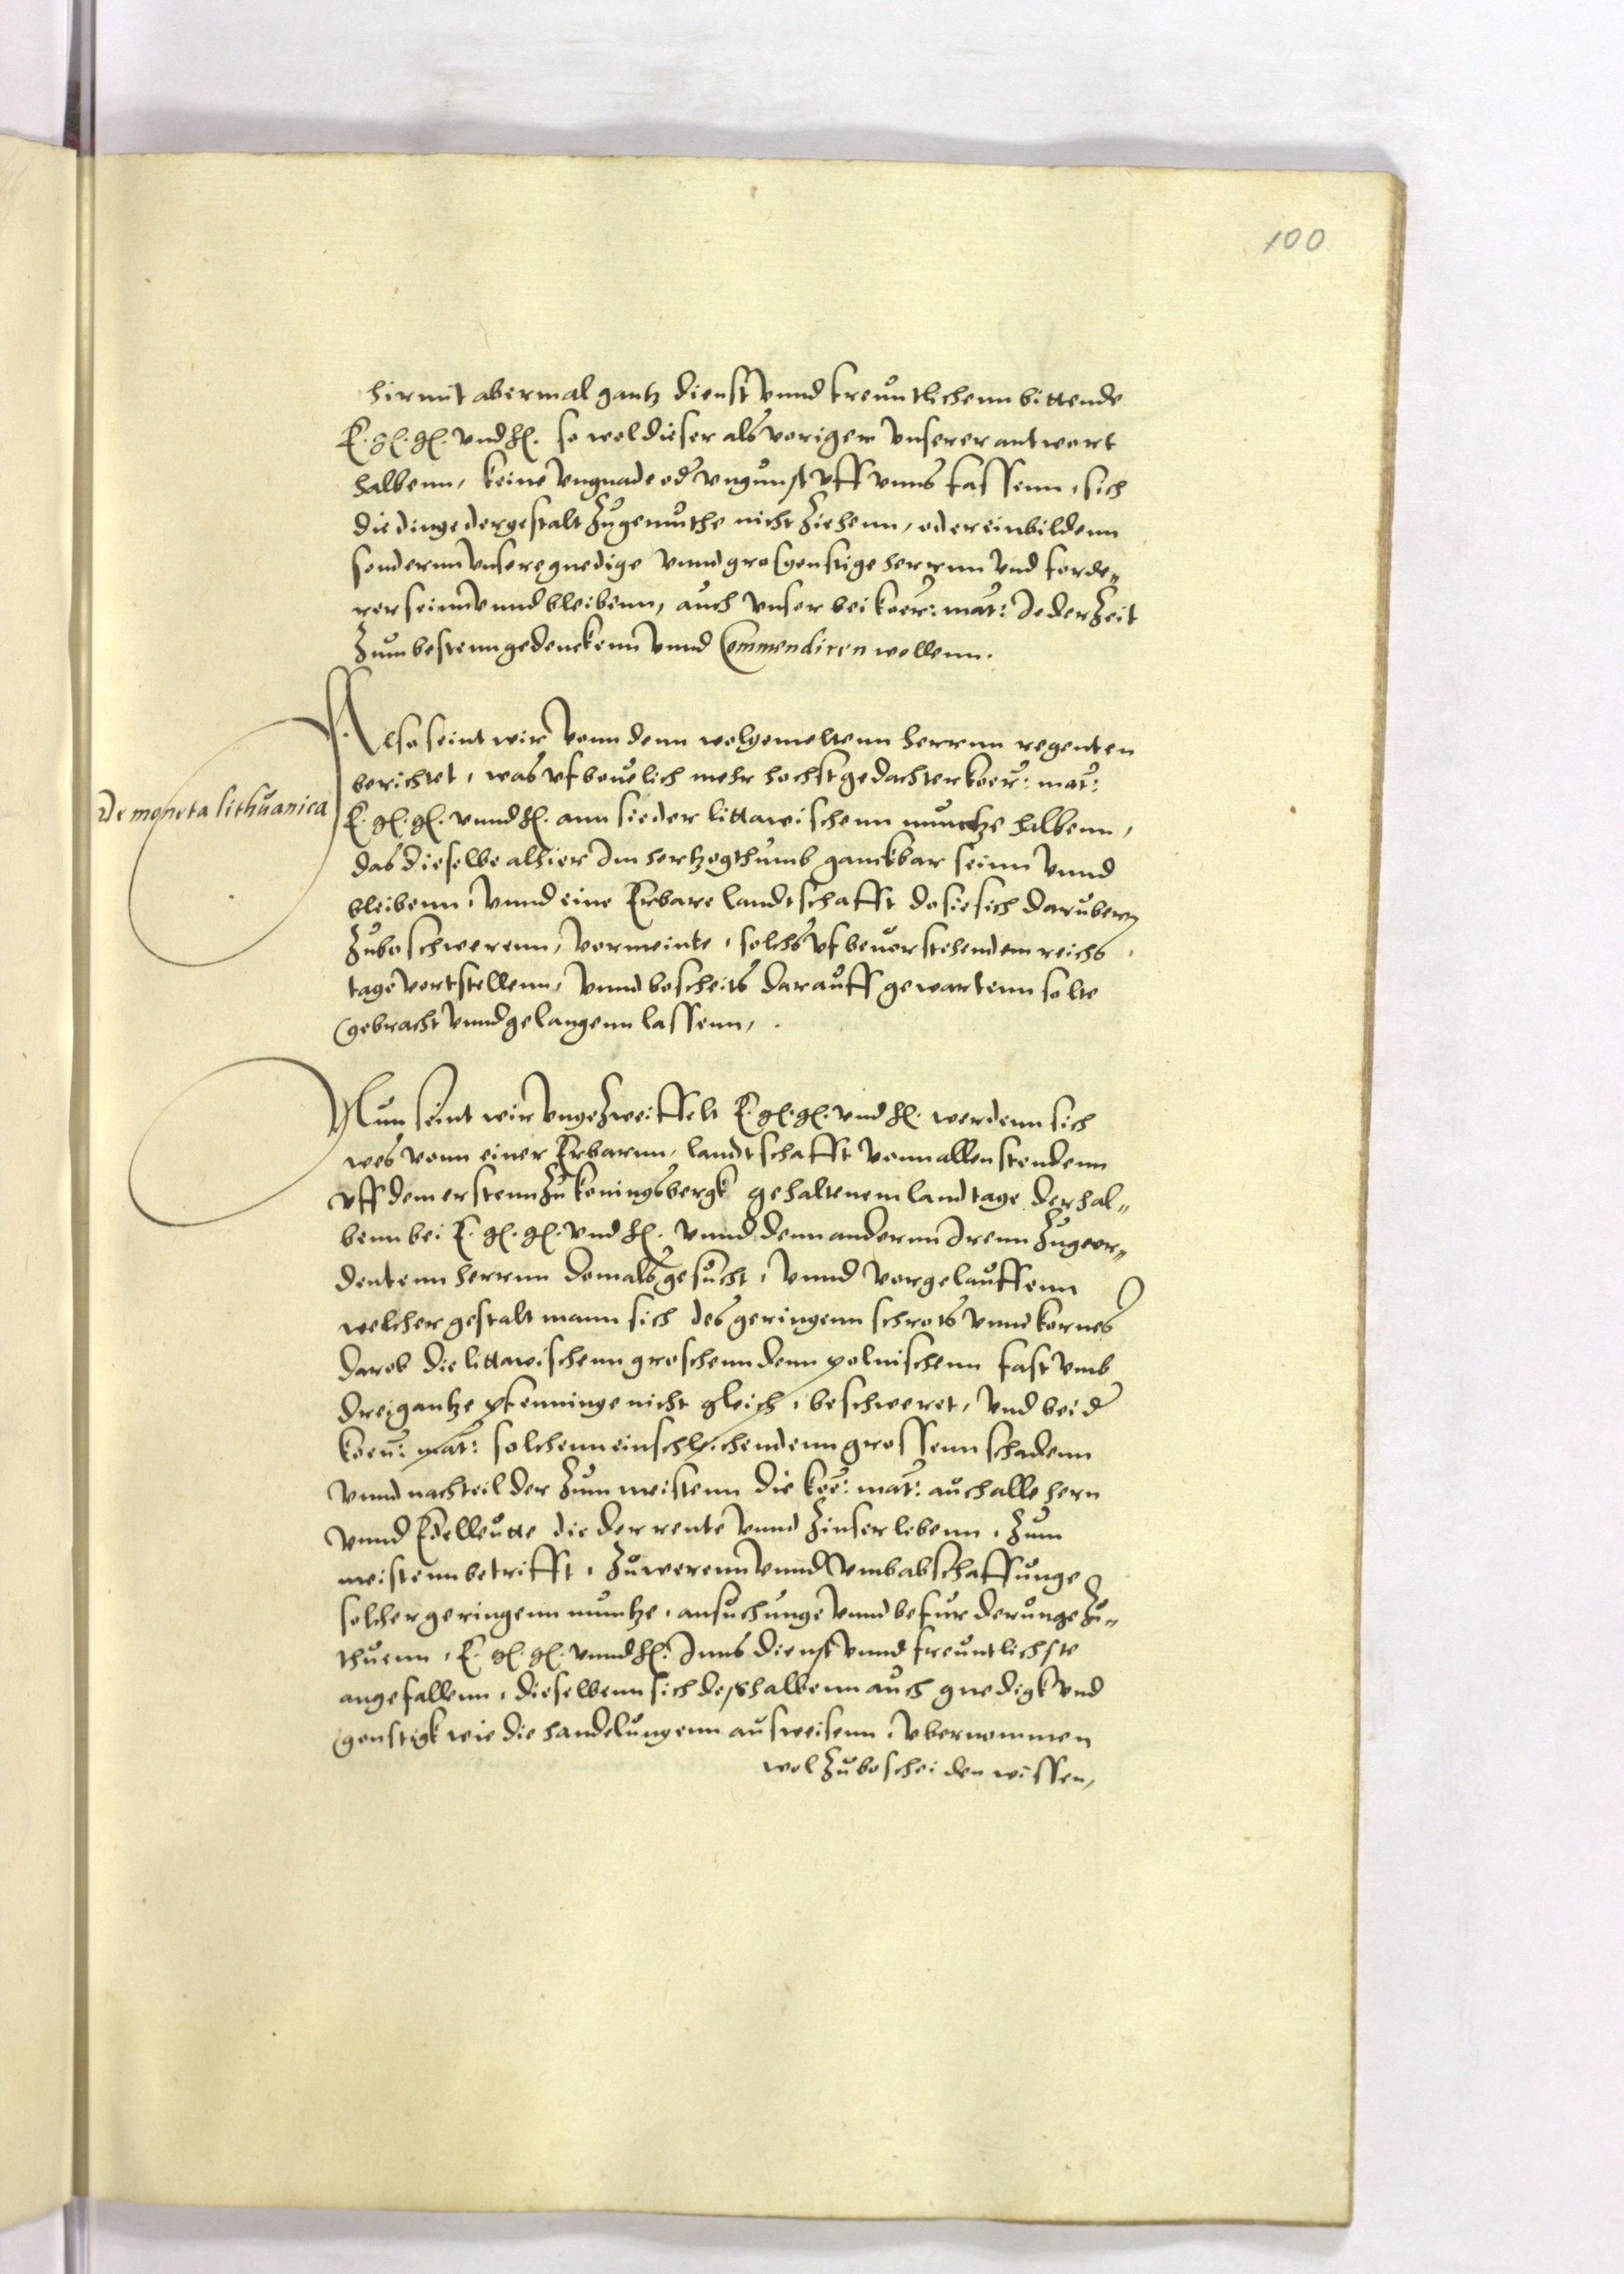 100
hirmit abermal gantz dienst vnnd freuntlichenn bittende
E. gl. gl. vnd hl. so wol dieser als voriger vnserer antwort
halbenn, keine vngnade oder vngunst vff vnns fassenn, sich
die dinge dergestalt zugemuthe nicht ziehenn, oder einbildenn
sonderrnn vnsere gnedige vnnd grosgonstige herrnn vnd forde„
rer seinn vnnd bleibenn, auch vnser bei koer: mat: Jederzeit
zum bestenn gedenckenn vnnd Commendiren wollenn.
Also seint wir vonn denn wolgemeltenn herrnn regenten
berichtet, was vf beuelich mehr hochstgedachter koer: mat:
De moneta lithuanica
E. gl. gl. vnnd hl. ann sie der littawischenn muntze halbenn,
das dieselbe alhier Im hertzogthumb ganckbar seinn vnnd
bleibenn, vnnd eine Erbare landtschafft do sie sich daruber
zubeschwerenn, vermeinte, solchs vf beuorstehendem reichs
tage vortstellenn, vnnd bescheits darauff gewartenn solte
gebracht vnnd gelangenn lassenn,
Nun seint wir vngezweiffelt E. gl. gl. vnd hl. werdenn sich
wes vonn einer Erbarnn, landtschafft vonn allen stendenn
vff dem erstenn zu koningsbergk gehaltenem landtage derhal„
benn bei E. gl. gl. vnd hl. vnnd denn andernn Irenn zugeor„
dentenn herrnn domals gesucht, vnnd vorgelauffenn
welcher gestalt mann sich des geringenn schrots vnnd kornes
darob die littawischenn groschenn denn polnischenn fast vmb
drei gantze pfenninge nicht gleich, beschweret, vnd bei d
koen: mat: solchenn einschleichendenn grossenn schadenn
vnnd nachteil der zum meistenn die koe: mat: auch alle hern
vnnd Edelleutte die der rente vnnd zinser lebenn, zum
meistenn betrifft, zuwerenn vnnd vmb abschaffunge
solcher geringenn muntze, ansuchunge vnnd befurderunge zu„
thuenn, E. gl. gl. vnnd hl. Inns dienst vnnd freuntlichste
angefallenn, dieselbenn sich deshalbenn auch gnedigk vnd
gonstigk wie die handelungenn ausweisenn, vbernommen
wol zubescheiden wissen,